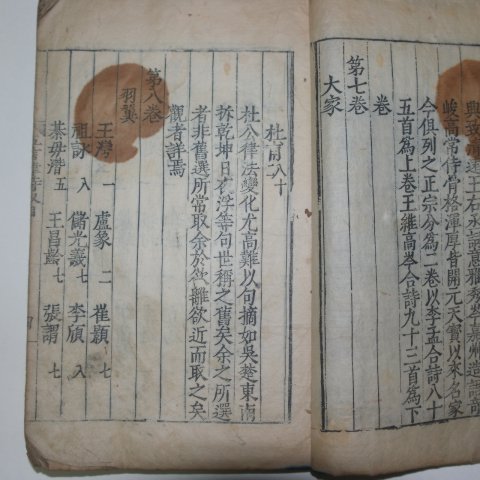 興致
王右丞
高常侍骨格渾厚皆開元天寶以來名家
今俱列之正宗分爲二卷以李孟合詩八十
五首爲上卷王維高岑合詩九十三首爲下
卷
第七卷
大家
杜甫八十
杜公律法變化尤高難以句摘如吳楚東南
拆乾坤日夜浮等句世稱之舊矣余之所選
者非舊選所常取余於欲離欲近而取之矣
觀者詳焉
第八卷
羽翼
王灣 一 盧象 二 崔顥 七
祖詠 八 儲光羲 七 李頎 八
綦毋潛 五 王昌齡 七 張謂 七